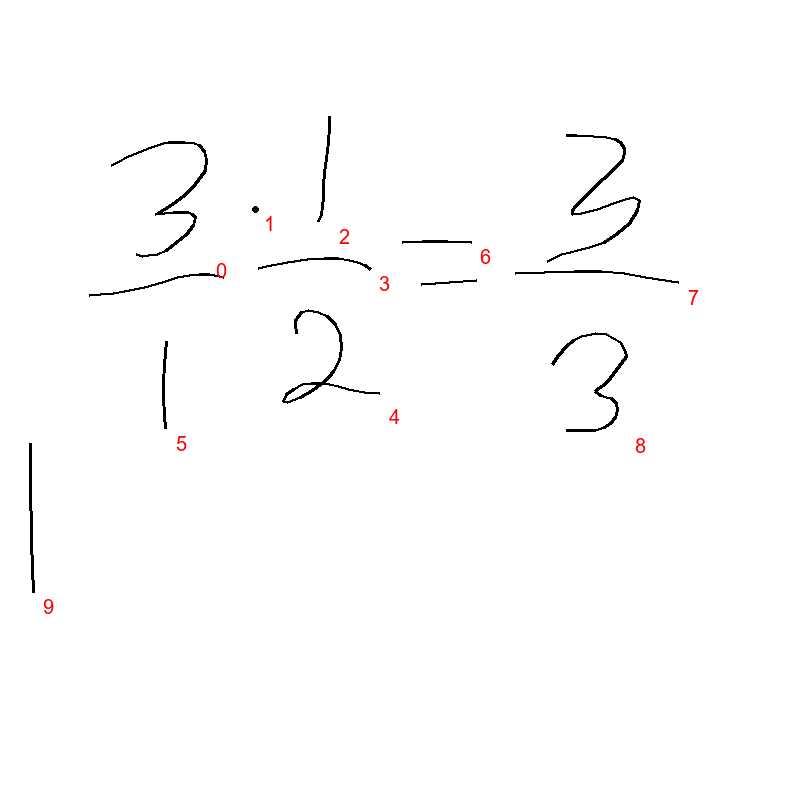 3/1 · 1/2 = 3/3
0 1 2 3 4 5 6 7 8
1
9